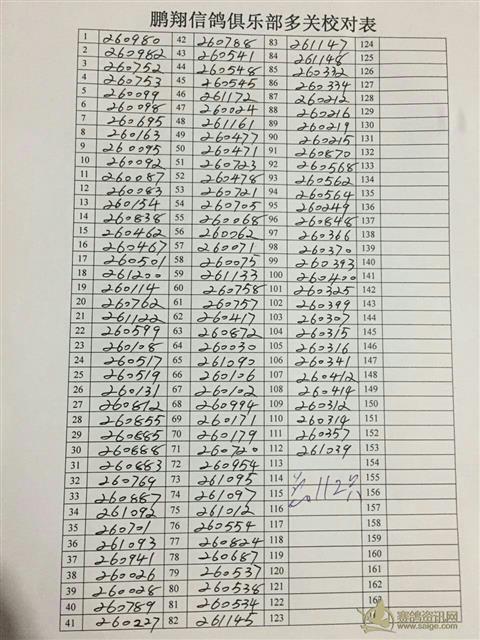 鹏翔信鸽俱乐部多关校对表
1 260980 42 260788 83 261147 124
2 260982 43 260541 84 261148 125
3 260752 44 260548 85 260332 126
4 260753 45 260545 86 260334 127
5 260099 46 261172 87 260212 128
6 260098 47 260024 88 260216 129
7 260695 48 261161 89 260219 130
8 260163 49 260477 90 260215 131
9 260095 50 260471 91 260870 132
10 260092 51 260723 92 260568 133
11 260087 52 260478 93 260562 134
12 260083 53 260721 94 260564 135
13 260154 54 260705 95 260249 136
14 260838 55 260068 96 260848 137
15 260462 56 260062 97 260366 138
16 260467 57 260071 98 260370 139
17 260501 58 260075 99 260393 140
18 261200 59 261133 100 260400 141
19 260114 60 260758 101 260325 142
20 260762 61 260757 102 260399 143
21 261122 62 260417 103 260307 144
22 260599 63 260872 104 260315 145
23 260108 64 260030 105 260316 146
24 260517 65 261090 106 260341 147
25 260519 66 260106 107 260412 148
26 260131 67 260102 108 260414 149
27 260812 68 260994 109 260312 150
28 260855 69 260171 110 260314 151
29 260885 70 260179 111 260357 152
30 260888 71 260720 112 261039 153
31 260883 72 260954 113 154
32 260769 73 261095 114 155
33 260887 74 261097 115 112只 156
34 261092 75 261012 116 157
35 260701 76 260554 117 158
36 261093 77 260824 118 159
37 260941 78 260687 119 160
38 260026 79 260537 120 161
39 260028 80 260538 121 162
40 260789 81 260534 122 163
41 260227 82 261145 123
赛鸽资讯网
www.saige.com